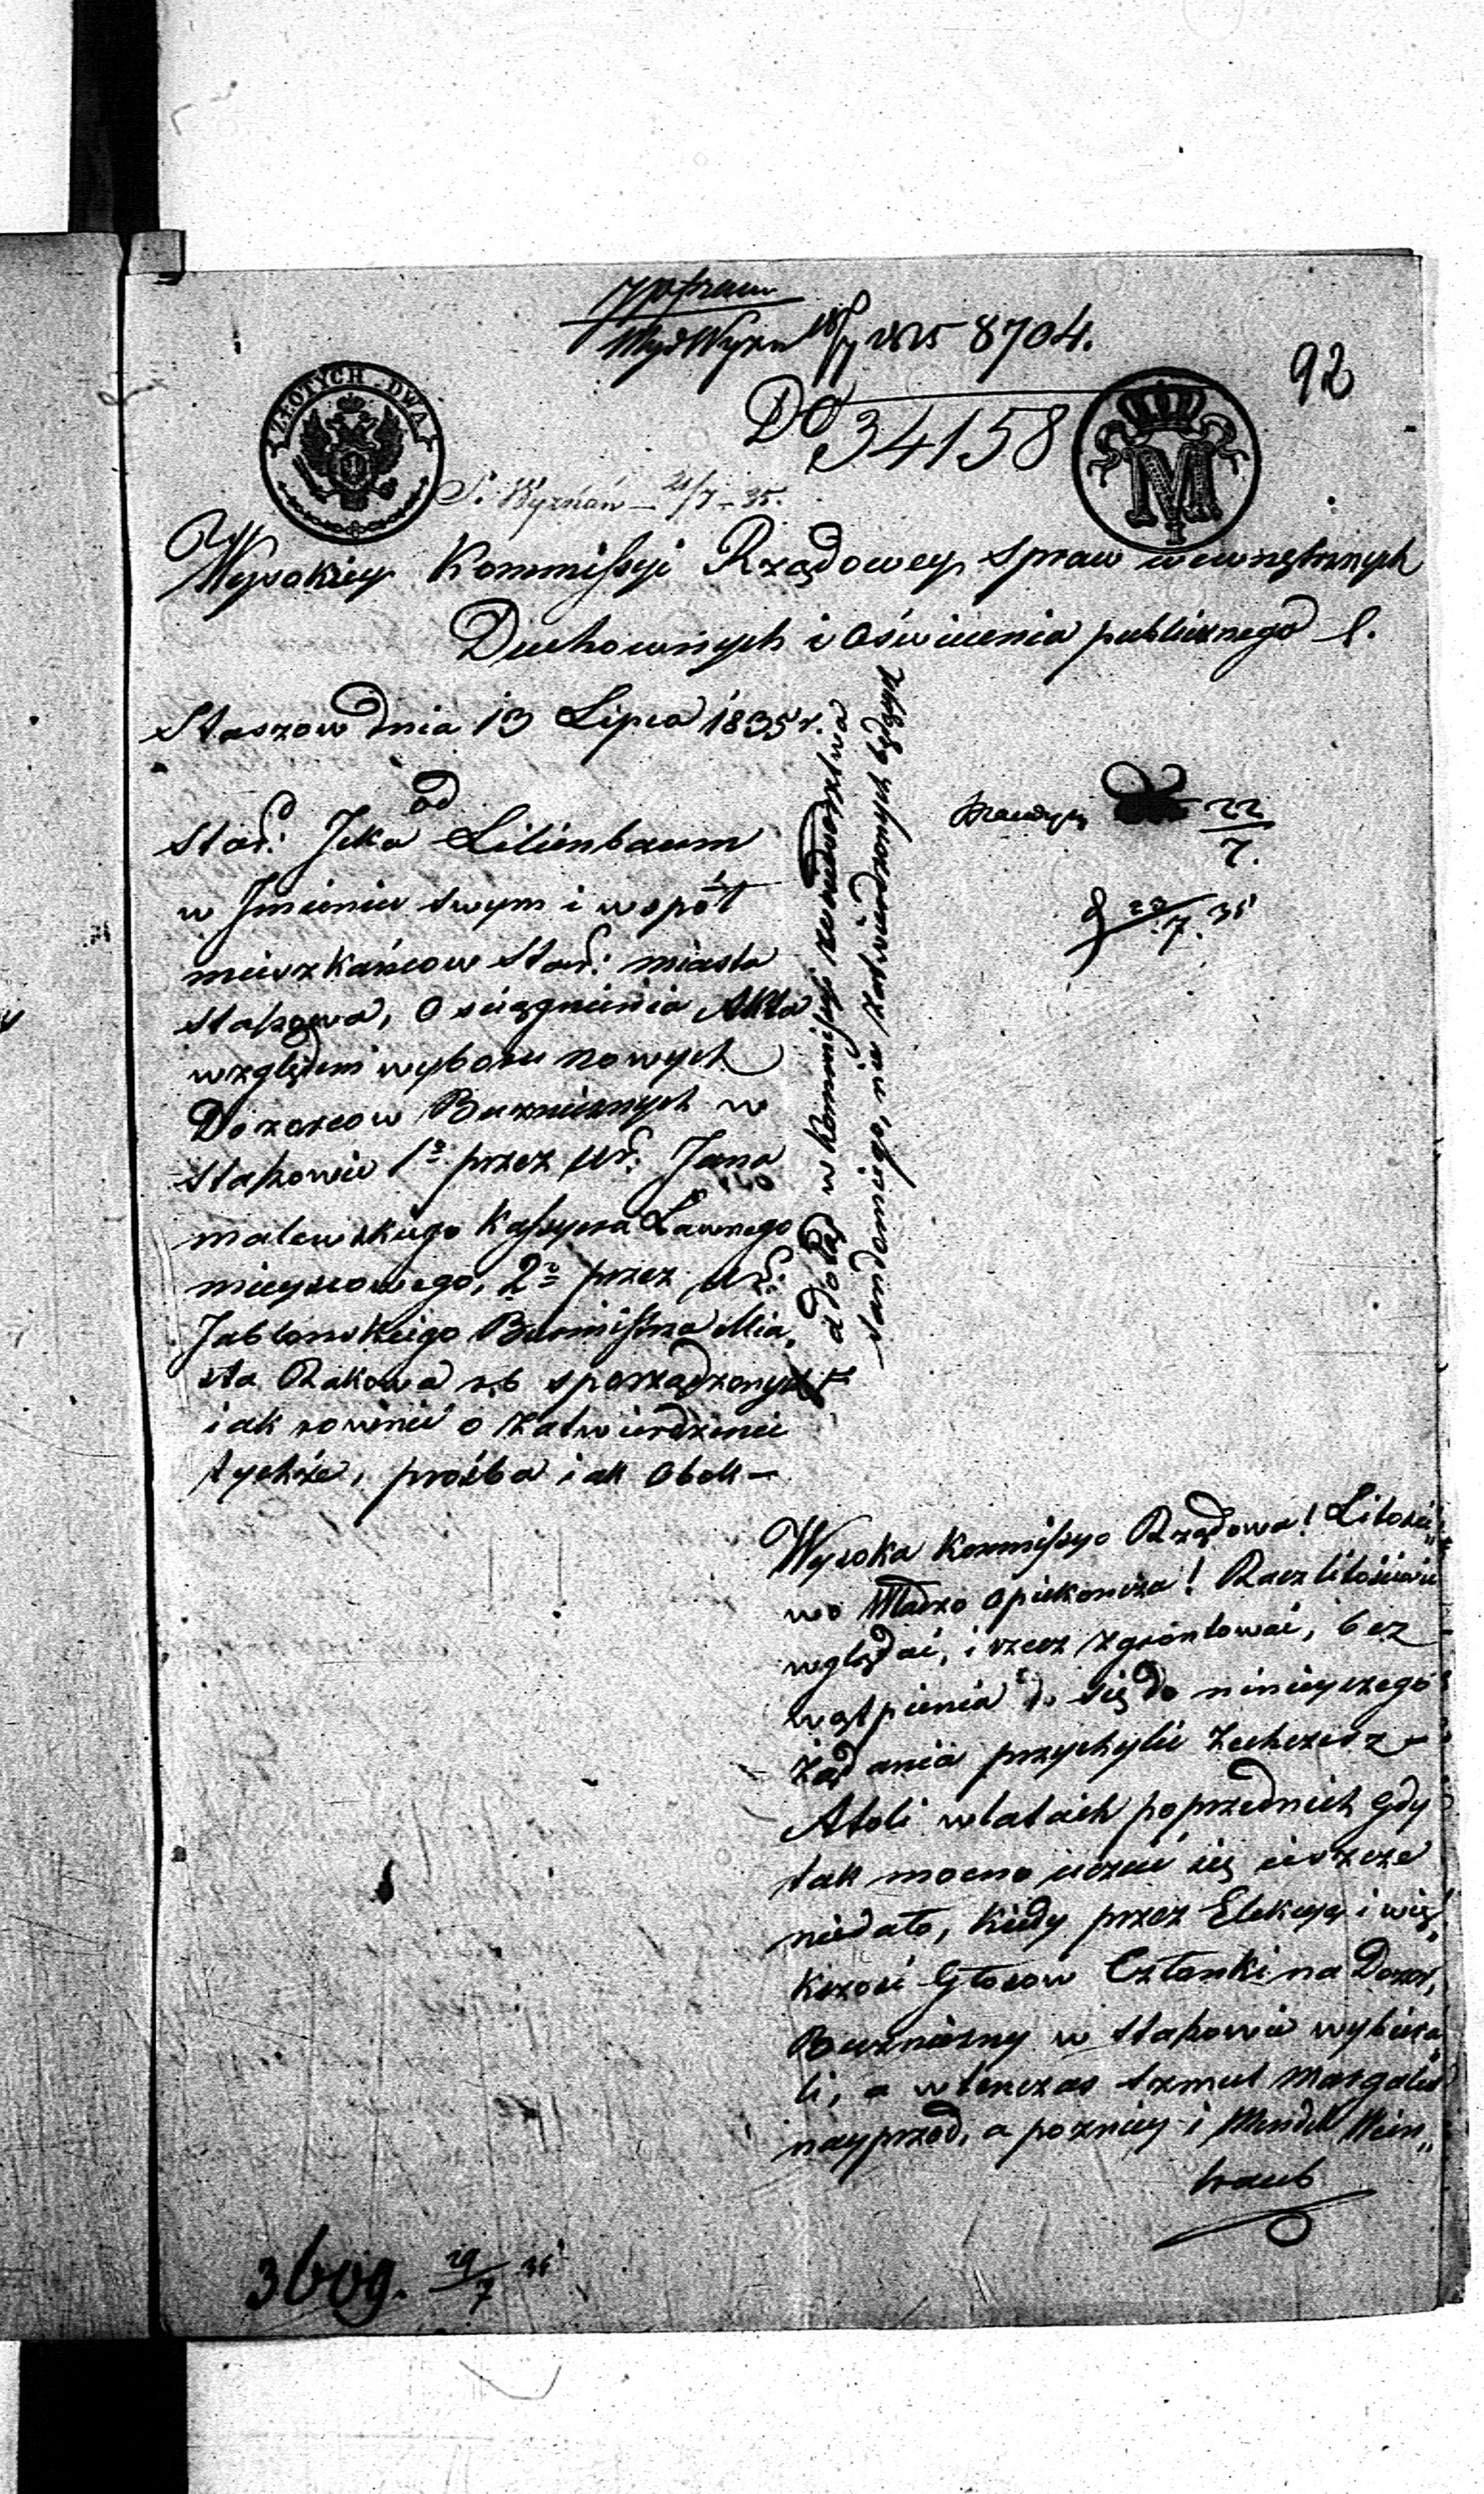 Wyd Wyzn 18/7 1835 8704.
92
ZŁOTYCH DWA
Do
34158
M
S. Wyznań — 21/7 - 35.
Wysokiey Kommissyi Rządowey Spraw wewnętrznych
Duchownych i Oświecenia publicznego
Staszow dnia 13 Lipca 1835 r.
od
Star: Icka Lilienbaum
w Imieniu swym i współ
mieszkańcow Star: miasta
Staszowa, o sciągnienia Akta
względem wyboru nowych
Dozorcow Buzniczych w
Staszowie 1o przez Ur: Jana
malewskiego Kassyera Lawnego
mieyscowego, 2o przez Ur:
Jabłonskiego Burmistrza Mia„
sta Rakowa r.b sporządzonych
iak rownie o zatwierdzenie
tychże, prośba iak obok —
a to bądź w Kommissyi Woiewodztwa
22
7.
23/7. 35
Wysoka Kommissyo Rządowa! Litości„
wa Władzo Opiekoncza! Racz litościwie
wglądać, i rzecz zgróntować, bez
wątpienia się do ninieyszego
żądania przychylić zechcesz —
Atoli w latach poprzednich gdy
tak mocno uczuć się ieszcze
niedało, kiedy przez Elekcyą i wię„
kszość Głosow Członki na Dozor„
Buzniczny w Staszowie wybiera„
li, a wtenczas Szmul Margulis
nayprzod, a pozniey i Mendel Wein„
traub
3609. 29/7 35